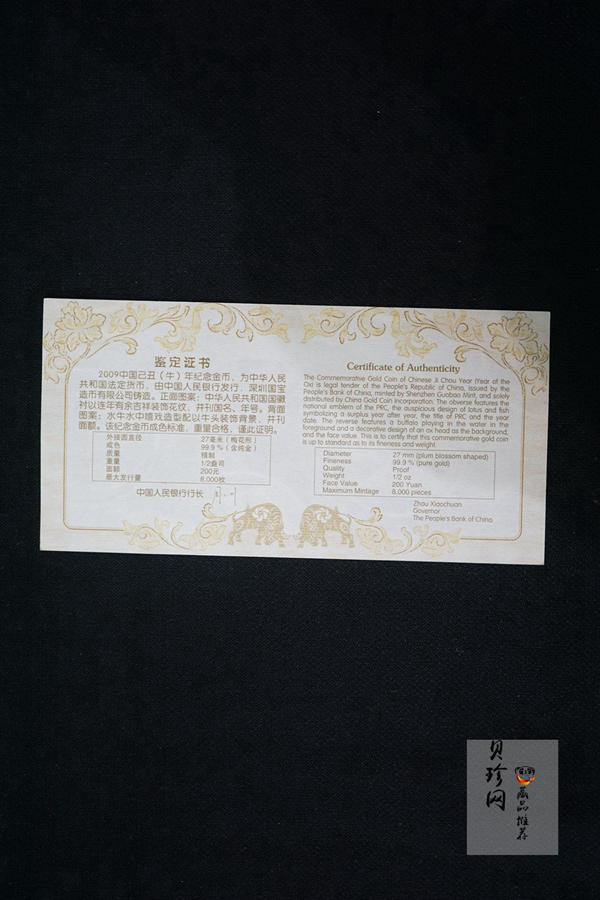 鉴定证书
2009中国己丑（牛）年纪念金币，为中华人民
共和国法定货币，由中国人民银行发行，深圳国宝
造币有限公司铸造。正面图案：中华人民共和国国徽
衬以连年有余吉祥装饰花纹，并刊国名、年号。背面
图案：水牛水中嬉戏造型配以牛头装饰背景，并刊
面额。该纪念金币成色标准，重量合格，谨此证明。
外接圆直径 27毫米（梅花形）
成色 99.9％（含纯金）
质量 精制
重量 1/2盎司
面额 200元
最大发行量 8,000枚
中国人民银行行长
Certificate of Authenticity
The Commemorative Gold Coin of Chinese Ji Chou Year (Year of the
Ox) is legal tender of the People's Republic of China, issued by the
People's Bank of China, minted by Shenzhen Guobao Mint, and solely
distributed by China Gold Coin Incorporation. The obverse features the
national emblem of the PRC, the auspicious design of lotus and fish
symbolizing a surplus year after year, the title of PRC and the year
date. The reverse features a buffalo playing in the water in the
foreground and a decorative design of an ox head as the background,
and the face value. This is to certify that this commemorative gold coin
is up to standard as to its fineness and weight.
Diameter 27 mm (plum blossom shaped)
Fineness 99.9 % (pure gold)
Quality Proof
Weight 1/2 oz
Face Value 200 Yuan
Maximum Mintage 8,000 pieces
Zhou Xiaochuan
Governor
The People's Bank of China
贝珍网
藏品推荐